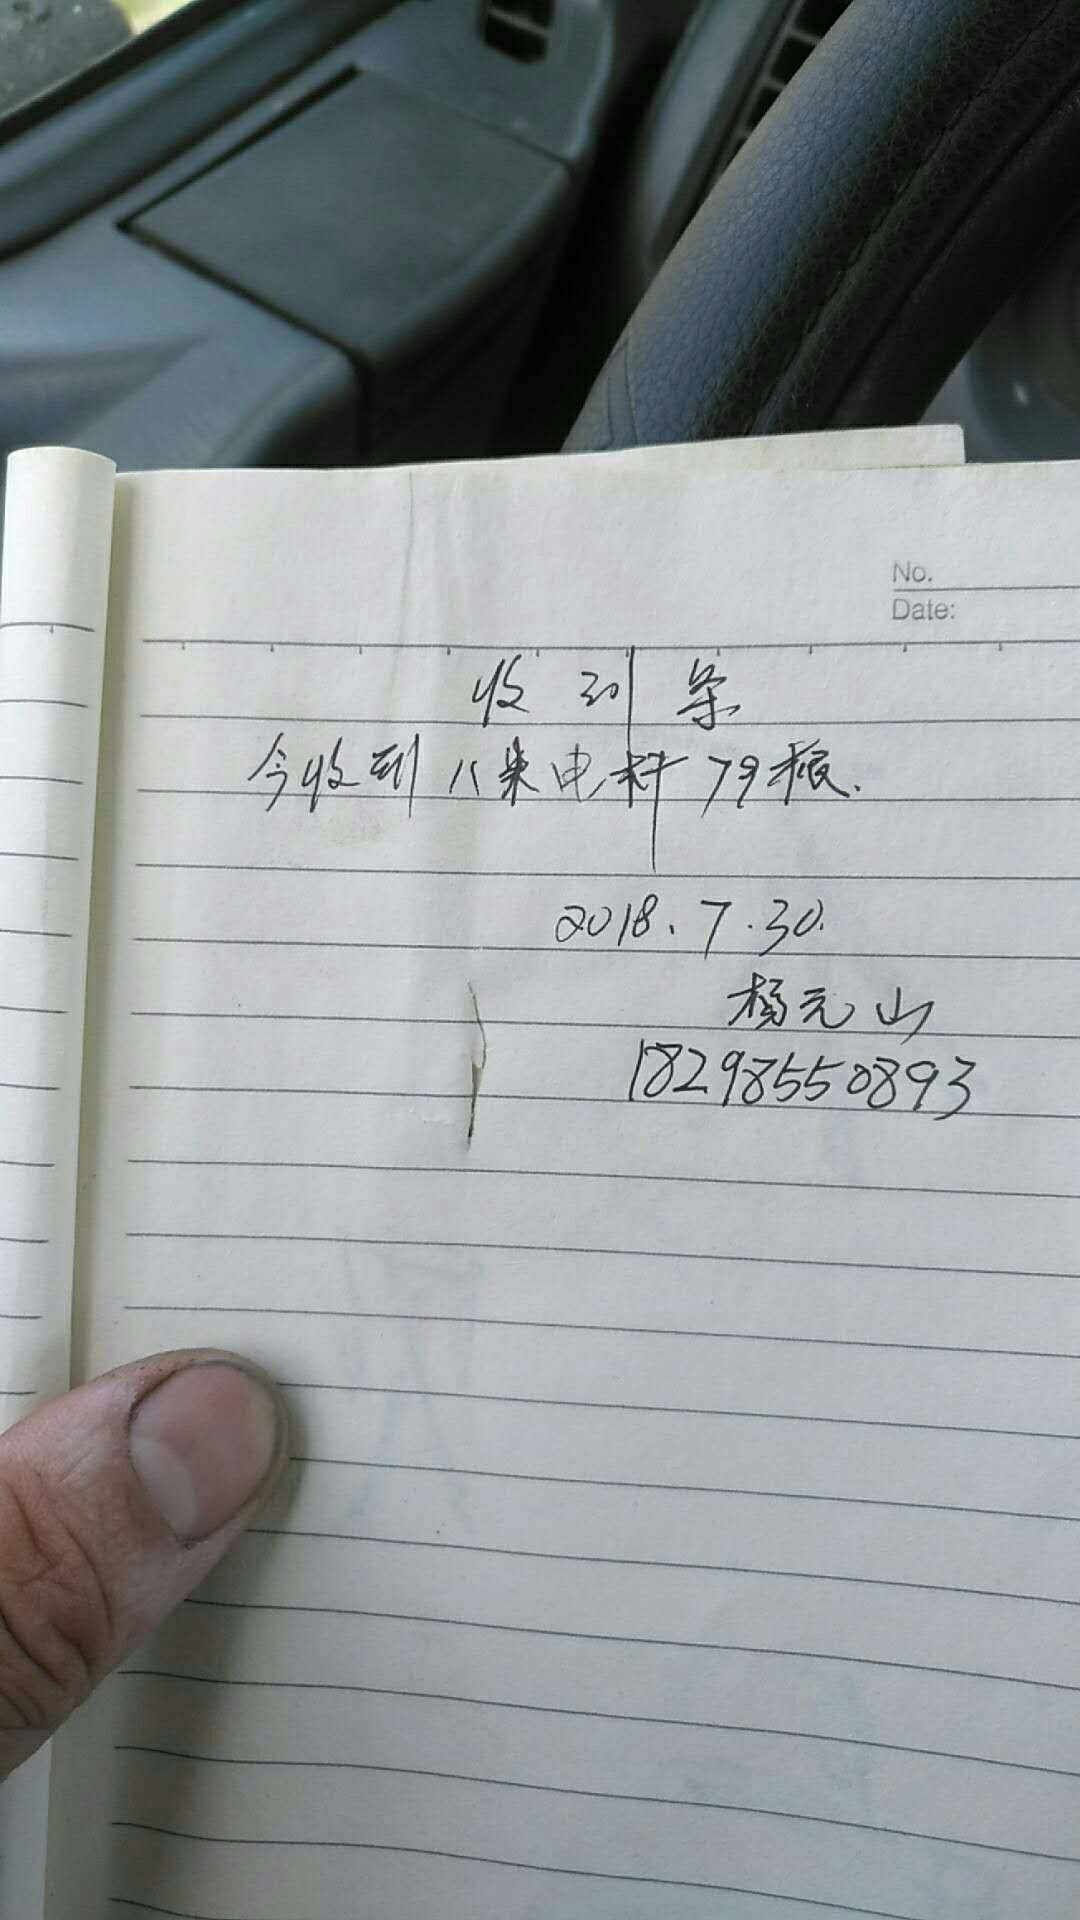 No.
Date:
收到条
今收到八米电杆79根.
2018.7.30.
杨元山
18298550893